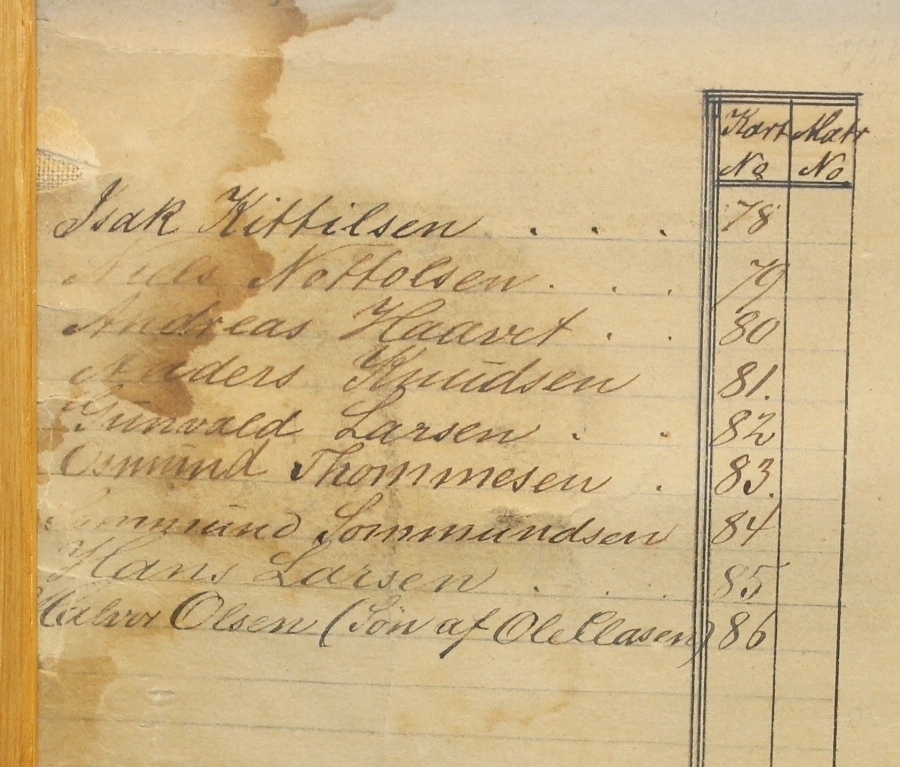 Kart Matr
No No
Isak Kittilsen . . . 78
Niels Nottolsen . . . 79
Andreas Haavet . . 80
Knudsen 81.
Gunvald Larsen . . 82
Osmund Thommesen . 83.
Sommundsen 84
Hans Larsen . . . 85
Halvor Olsen (Søn af Ole Clasen) 86